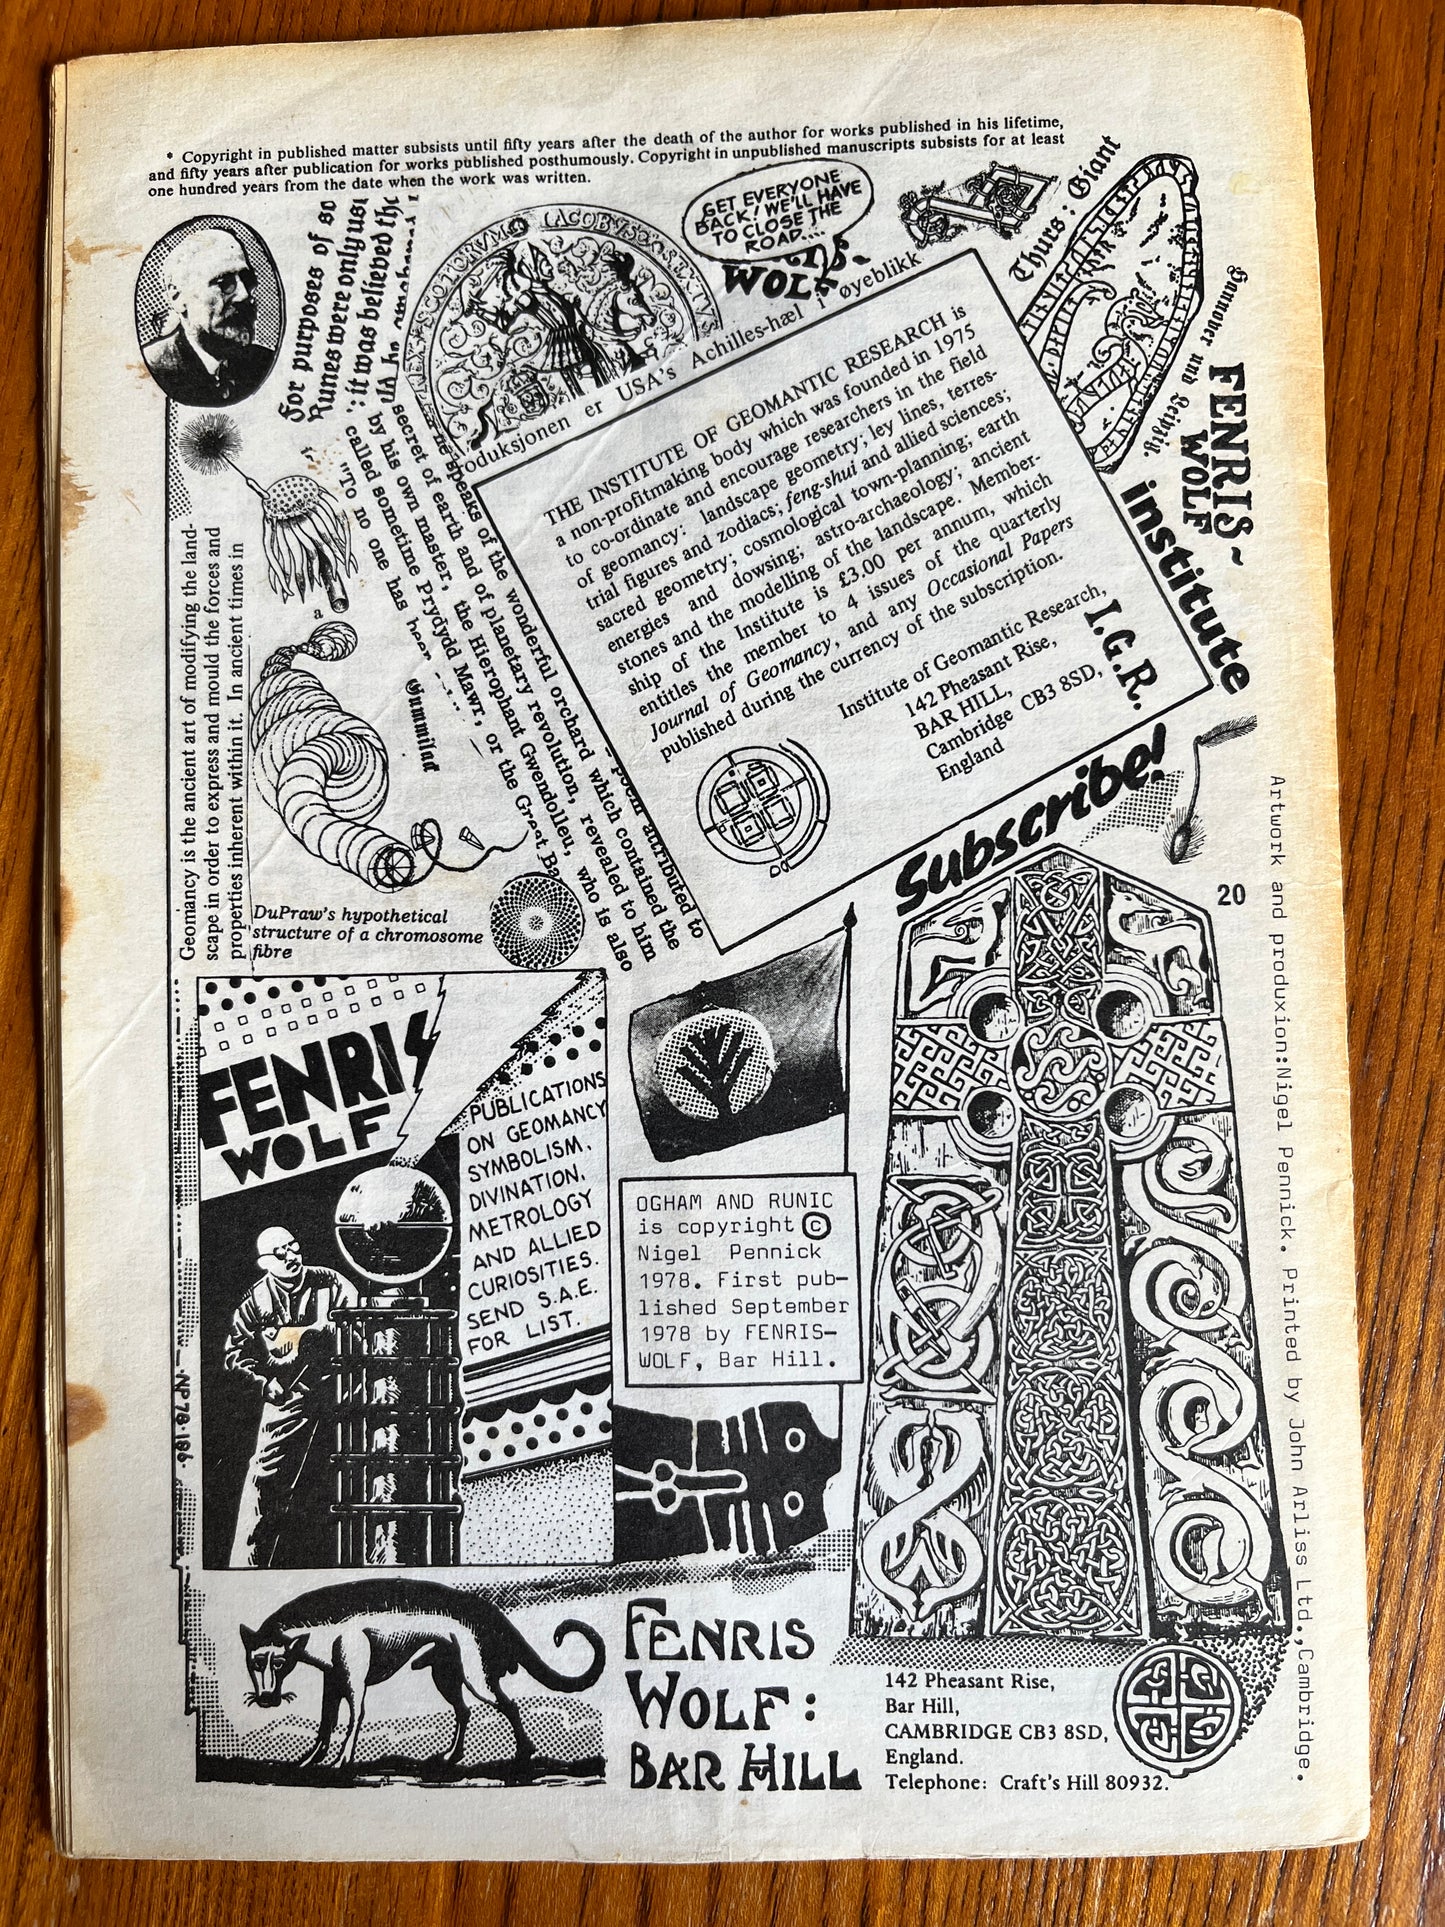 * Copyright in published matter subsists until fifty years after the death of the author for works published in his lifetime,
and fifty years after publication for works published posthumously. Copyright in unpublished manuscripts subsists for at least
one hundred years from the date when the work was written.
GET EVERYONE
BACK! WE'LL HAVE
TO CLOSE THE
ROAD....
WOLF
IACOBVS
SEXTVS
SCOTORVM
Thurs: Giant
Hannover und Leipzig.
FENRIS~
WOLF
institute
For purposes of so
Runes were only usu
: it was believed tho
roduksjonen er USA's Achilles-hæl i øyeblikk
THE INSTITUTE OF GEOMANTIC RESEARCH is
a non-profitmaking body which was founded in 1975
to co-ordinate and encourage researchers in the field
of geomancy: landscape geometry; ley lines, terres-
trial figures and zodiacs; feng-shui and allied sciences;
sacred geometry; cosmological town-planning; earth
energies and dowsing; astro-archaeology; ancient
stones and the modelling of the landscape. Member-
ship of the Institute is £3.00 per annum, which
entitles the member to 4 issues of the quarterly
Journal of Geomancy, and any Occasional Papers
published during the currency of the subscription.
Institute of Geomantic Research,
142 Pheasant Rise,
BAR HILL,
Cambridge CB3 8SD,
England
I.G.R.
Subscribe!
poem attributed to
ne speaks of the wonderful orchard which contained the
secret of earth and of planetary revolution, revealed to him
by his own master, the Hierophant Gwendolleu, who is also
called sometime Prydydd Mawr, or the Great Ba
"To no one has been
a
Geomancy is the ancient art of modifying the land-
scape in order to express and mould the forces and
properties inherent within it. In ancient times in
DuPraw's hypothetical
structure of a chromosome
fibre
20
FENRIS
WOLF
PUBLICATIONS
ON GEOMANCY
SYMBOLISM,
DIVINATION,
METROLOGY
AND ALLIED
CURIOSITIES.
SEND S.A.E.
FOR LIST.
NP78·186
OGHAM AND RUNIC
is copyright ©
Nigel Pennick
1978. First pub-
lished September
1978 by FENRIS-
WOLF, Bar Hill.
Artwork and produxion:Nigel Pennick. Printed by John Arliss Ltd.,Cambridge.
FENRIS
WOLF:
BAR HILL
142 Pheasant Rise,
Bar Hill,
CAMBRIDGE CB3 8SD,
England.
Telephone: Craft's Hill 80932.